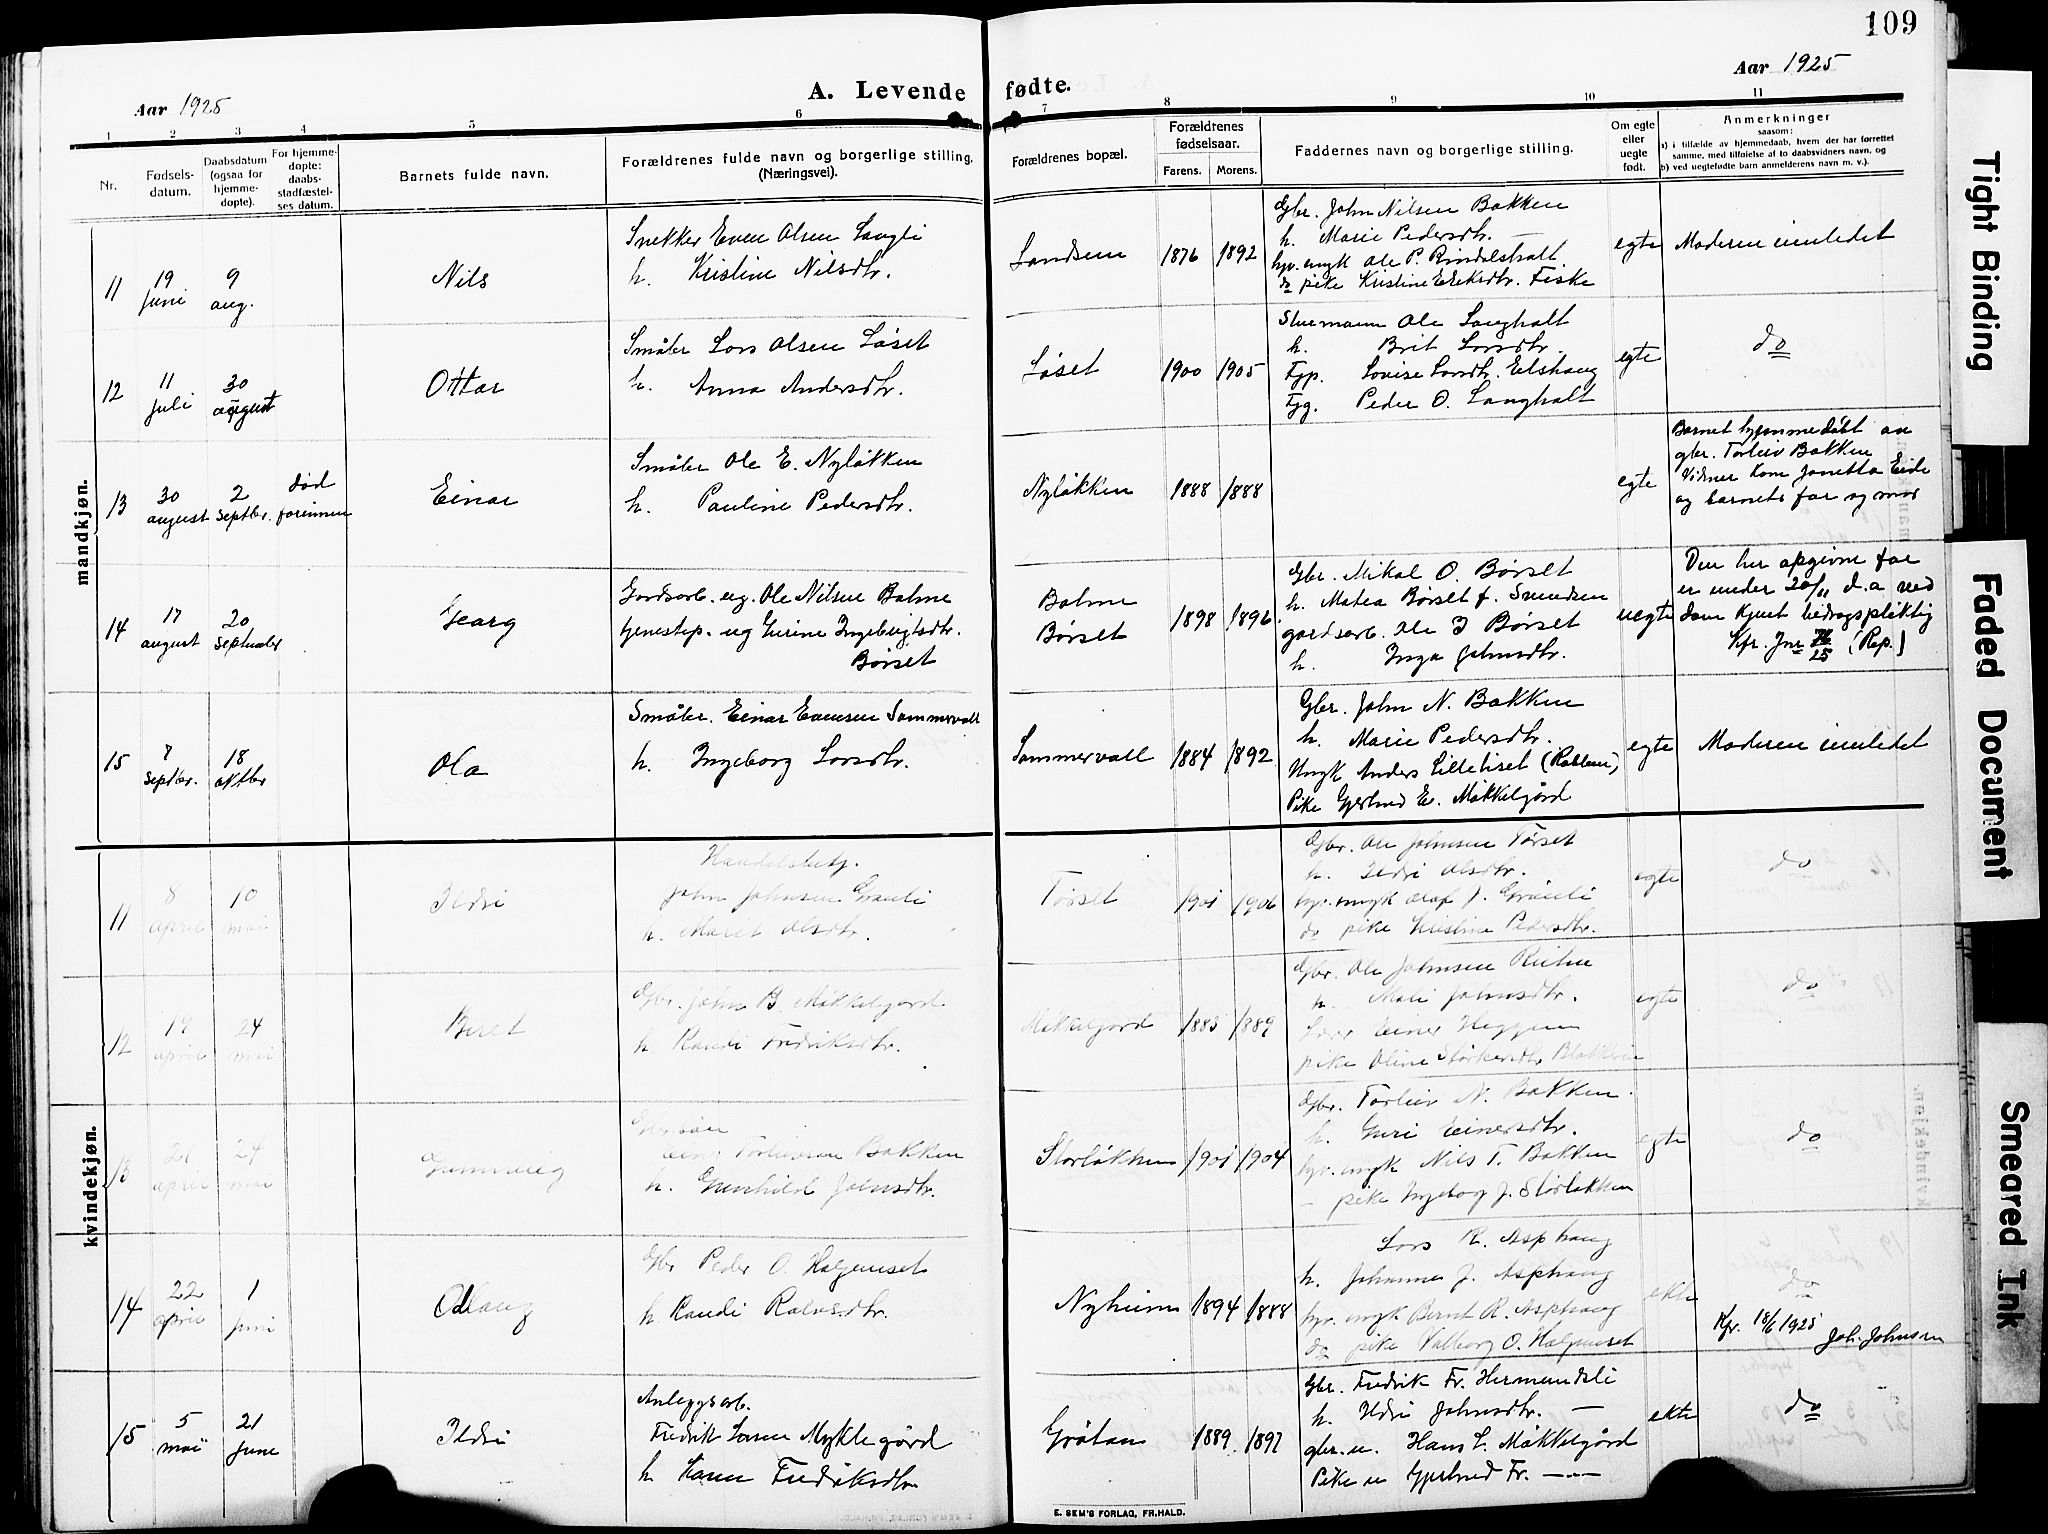 109
Aar 1925
A. Levende fødte.
Aar 1925
1 2 3 4 5 6 7 8 9 10 11
Nr.
Fødsels-
datum.
Daabsdatum
(ogsaa for
hjemme-
døpte).
For hjemme-
døpte:
daabs-
stadfæstel-
ses datum.
Barnets fulde navn.
Forældrenes fulde navn og borgerlige stilling.
(Næringsvei).
Forældrenes bopæl.
Forældrenes
fødselsaar.
Farens. Morens.
Faddernes navn og borgerlige stilling.
Om egte
eller
uegte
født.
Anmerkninger
saasom:
a) i tilfælde av hjemmedaab, hvem der har forrettet
samme, med tilføielse af to daabsvidners navn, og
b) ved uegtefødte barn anmelderens navn m. v.).
mandkjøn.
11
19
Juni
9
aug.
Nils
Snekker Even Olsen Langli
h. Kristine Nilsdtr.
Landsem
1876 1892
Gbr. John Nilsen Bakken
h. Marie Pedersdtr. —
hjv. ungk Ole P. Rindalsholt
do pike Kristine Eriksdtr. Fiske
egte
Moderen innledet
12
11
Juli
30
august
Ottar
Småbr Lars Olsen Løset
h. Anna Andersdtr.
Løset
1900 1905
Stuemann Ole Langholt
h. Brit Larsdtr.
Fyp. Lovise Larsdtr. Elshaug
Fyg. Peder O. Langholt
egte
do
13
30
august
2
Septbr.
død
forinnen
Einar
Småbr Ole E. Nyløkken
h. Pauline Pedersdtr.
Nyløkken
1888 1888
egte
Barnet hjemmedøbt av
gbr. Torleiv Bakken
Vidner Kom Janetta Eide
og barnets far og mor
14
17
august
20
September
Georg
Gardsarb. ug. Ole Nilsen Bolme
tjenestep. ug Gurine Ingebrigtsdtr.
Børset
Bolme
Børset
1898 1896
Gbr. Mikal O. Børset
h. Matea Børset f. Svendsen
gardsarb. Ole I Børset
h. Inga Johnsdtr.
uegte
Den her opgivne far
er under 20/11 d.a ved
dom kjent bidragspliktig
Kfr. Jnr 76/25 (Rep.)
15
8
Septbr.
18
oktbr
Ola
Småbr. Einar Evensen Sommervoll
h. Ingeborg Larsdtr.
Sommervoll
1884 1892
Gbr. John N. Bakken
h. Marie Pedersdtr.
Ungk Anders Lilleløset
Pike Gjertrud E. Møkkelgård
egte
Moderen innledet
kvindekjøn.
11
8
april
10
mai
Ildri
Handelsbetj.
John Johnsen Grønli
h. Marit Olsdtr.
Tørset
1901 1906
Gbr. Ole Johnsen Tørset
h. Ildri Olsdtr.
hjv. ungk Olaf J. Grønli
do pike Kristine Pedersdtr.
egte
do
12
19
april
24
mai
Beret
Gbr. John B. Møkkelgård
h. Randi Fredriksdtr.
Møkkelgård
1883 1889
Gbr. Ole Johnsen
h. Mali Johnsdtr.
Lærer Einer Heggem
pike Oline Størkersdtr
egte
do
13
21
april
24
mai
Gunnveig
Gbr.søn
Einar Torleivsen Bakken
h. Gunhild Johnsdtr.
Storløkken
1901 1904
Gbr. Torleiv N. Bakken
h. Guri Einersdtr.
hjv. ungk Nils T. Bakken
— pike Ingeborg J. Storløkken
egte
do
14
22
april
1
juni
Oddlaug
Gbr Peder O. Halgunset
h. Randi Larsdtr.
Nyheim
1894 1888
Lars R. Asphaug
h. Johanna J. Asphaug
hjv. ungk Bernt R. Asphaug
do pike Valborg O. Halgunset
ekte
do
Kfr. 18/6 1925 Joh. Johnsen
15
5
mai
21
june
Ildri
Anleggsarb.
Fredrik Larsen Myklegård
h Karen Fredriksdtr
Gråtan
1889 1897
Gbr. Fredrik Fr. Hermundsli
h. Ildri Johnsdtr. —
gbr. u. Hans L. Møkkelgård
Pike u Gjertrud Fr. —"—
ekte
do
E. SEM'S FORLAG, FR.HALD.
Tight Binding
Faded Document
Smeared Ink